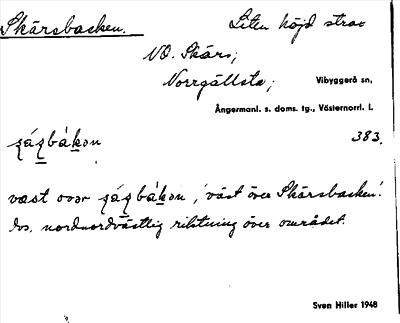 Skärsbacken. Liten höjd strax
NO. Skärs;
Norrgällsta; Vibyggerå sn,
Ångermanl. s. doms. tg., Västernorrl. l.
383.
väst över Skärsbacken!
Dvs. nordnordvästlig riktning över området.
Sven Hiller 1948